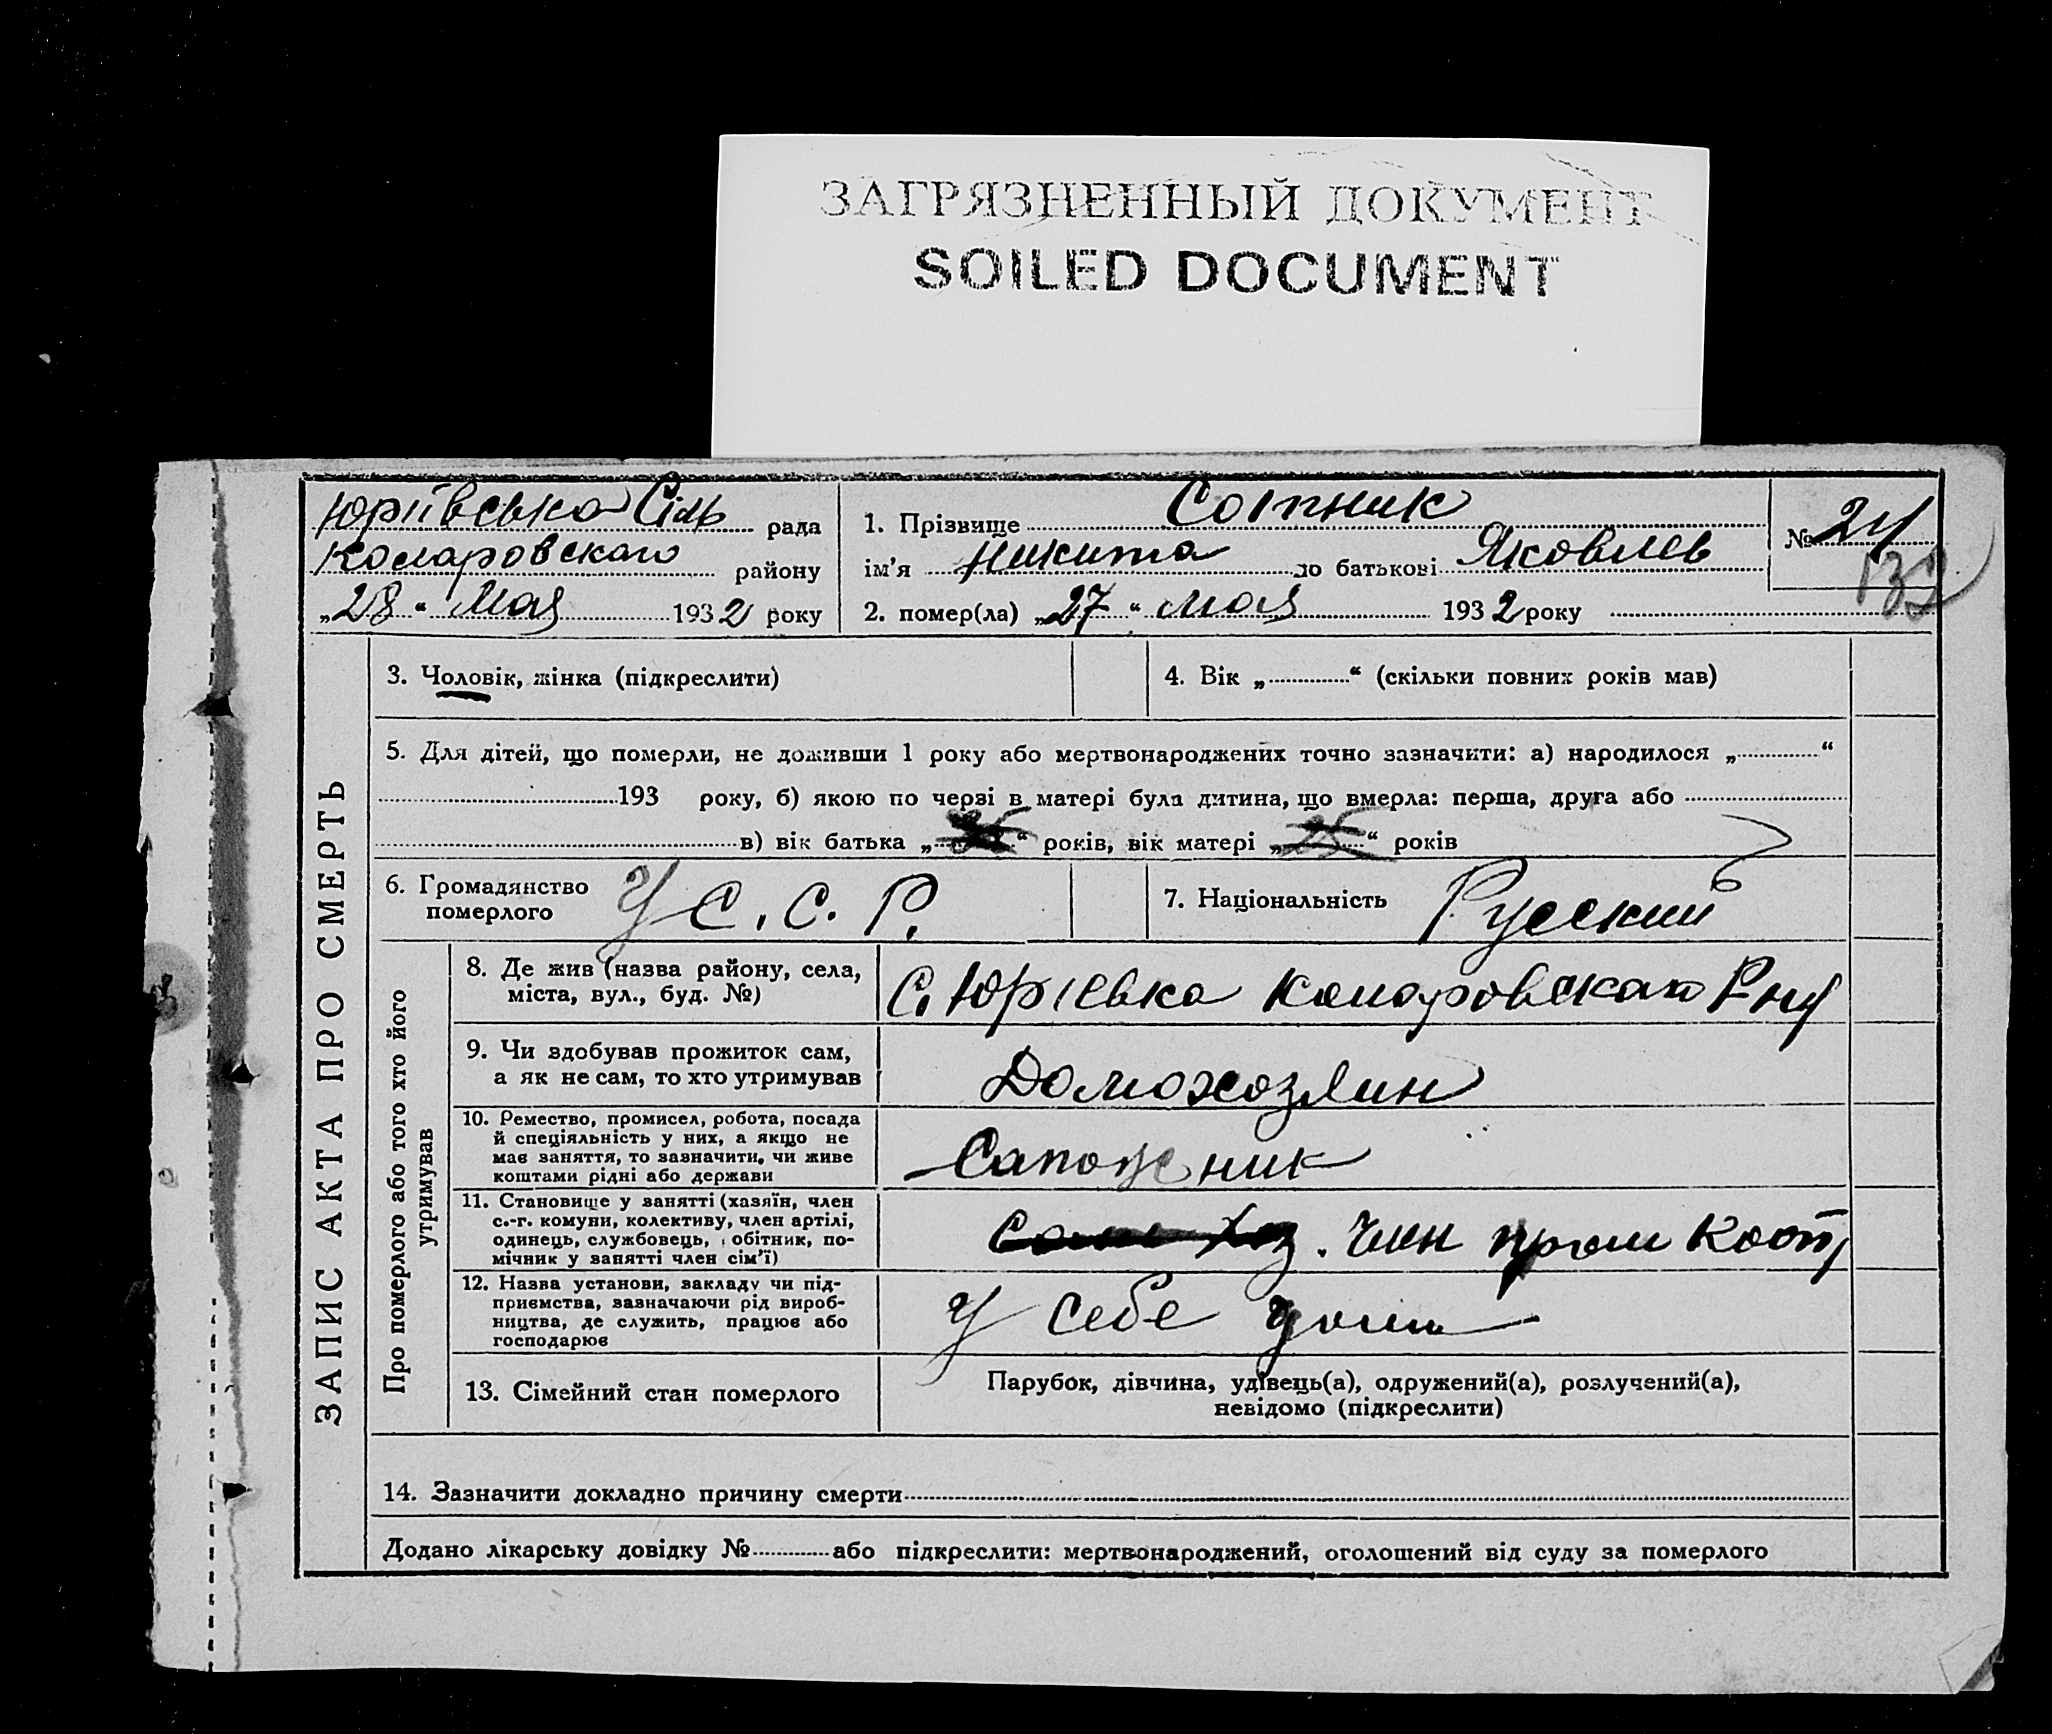 ЗАГРЯЗНЕННЫЙ ДОКУМЕНТ
SOILED DOCUMENT
Юріївська Сіль рада
Комаровскаго району
„28“ Мая 1932 року
1. Прізвище Сотник
ім’я Никита по батькові Яковлев
2. помер(ла) „27“ мая 1932 року
№ 24
132
ЗАПИС АКТА ПРО СМЕРТЬ
3. Чоловік, жінка (підкреслити)
4. Вік „ “ (скільки повних років мав)
5. Для дітей, що померли, не доживши 1 року або мертвонароджених точно зазначити: а) народилося „ “
193 року, б) якою по черзі в матері була дитина, що вмерла: перша, друга або
в) вік батька „ “ років, вік матері „25“ років
6. Громадянство
померлого
У С. С. Р.
7. Національність Русский
Про померлого або того хто його
утримував
8. Де жив (назва району, села,
міста, вул., буд. №)
С. Юріевка Комаровскаго Р-ну
9. Чи здобував прожиток сам,
а як не сам, то хто утримував
Домохозяин
10. Ремество, промисел, робота, посада
й спеціяльність у них, а якщо не
має заняття, то зазначити, чи живе
коштами рідні або держави
Сапожник
11. Становище у занятті (хазяїн, член
с.-г. комуни, колективу, член артілі,
одинець, службовець, обітник, по-
мічник у занятті член сім’ї)
Член пром Кооп
12. Назва установи, закладу чи під-
приємства, зазначаючи рід вироб-
ництва, де служить, працює або
господарює
У себе дома
13. Сімейний стан померлого
Парубок, дівчина, удівець(а), одружений(а), розлучений(а),
невідомо (підкреслити)
14. Зазначити докладно причину смерти
Додано лікарську довідку № або підкреслити: мертвонароджений, оголошений від суду за померлого